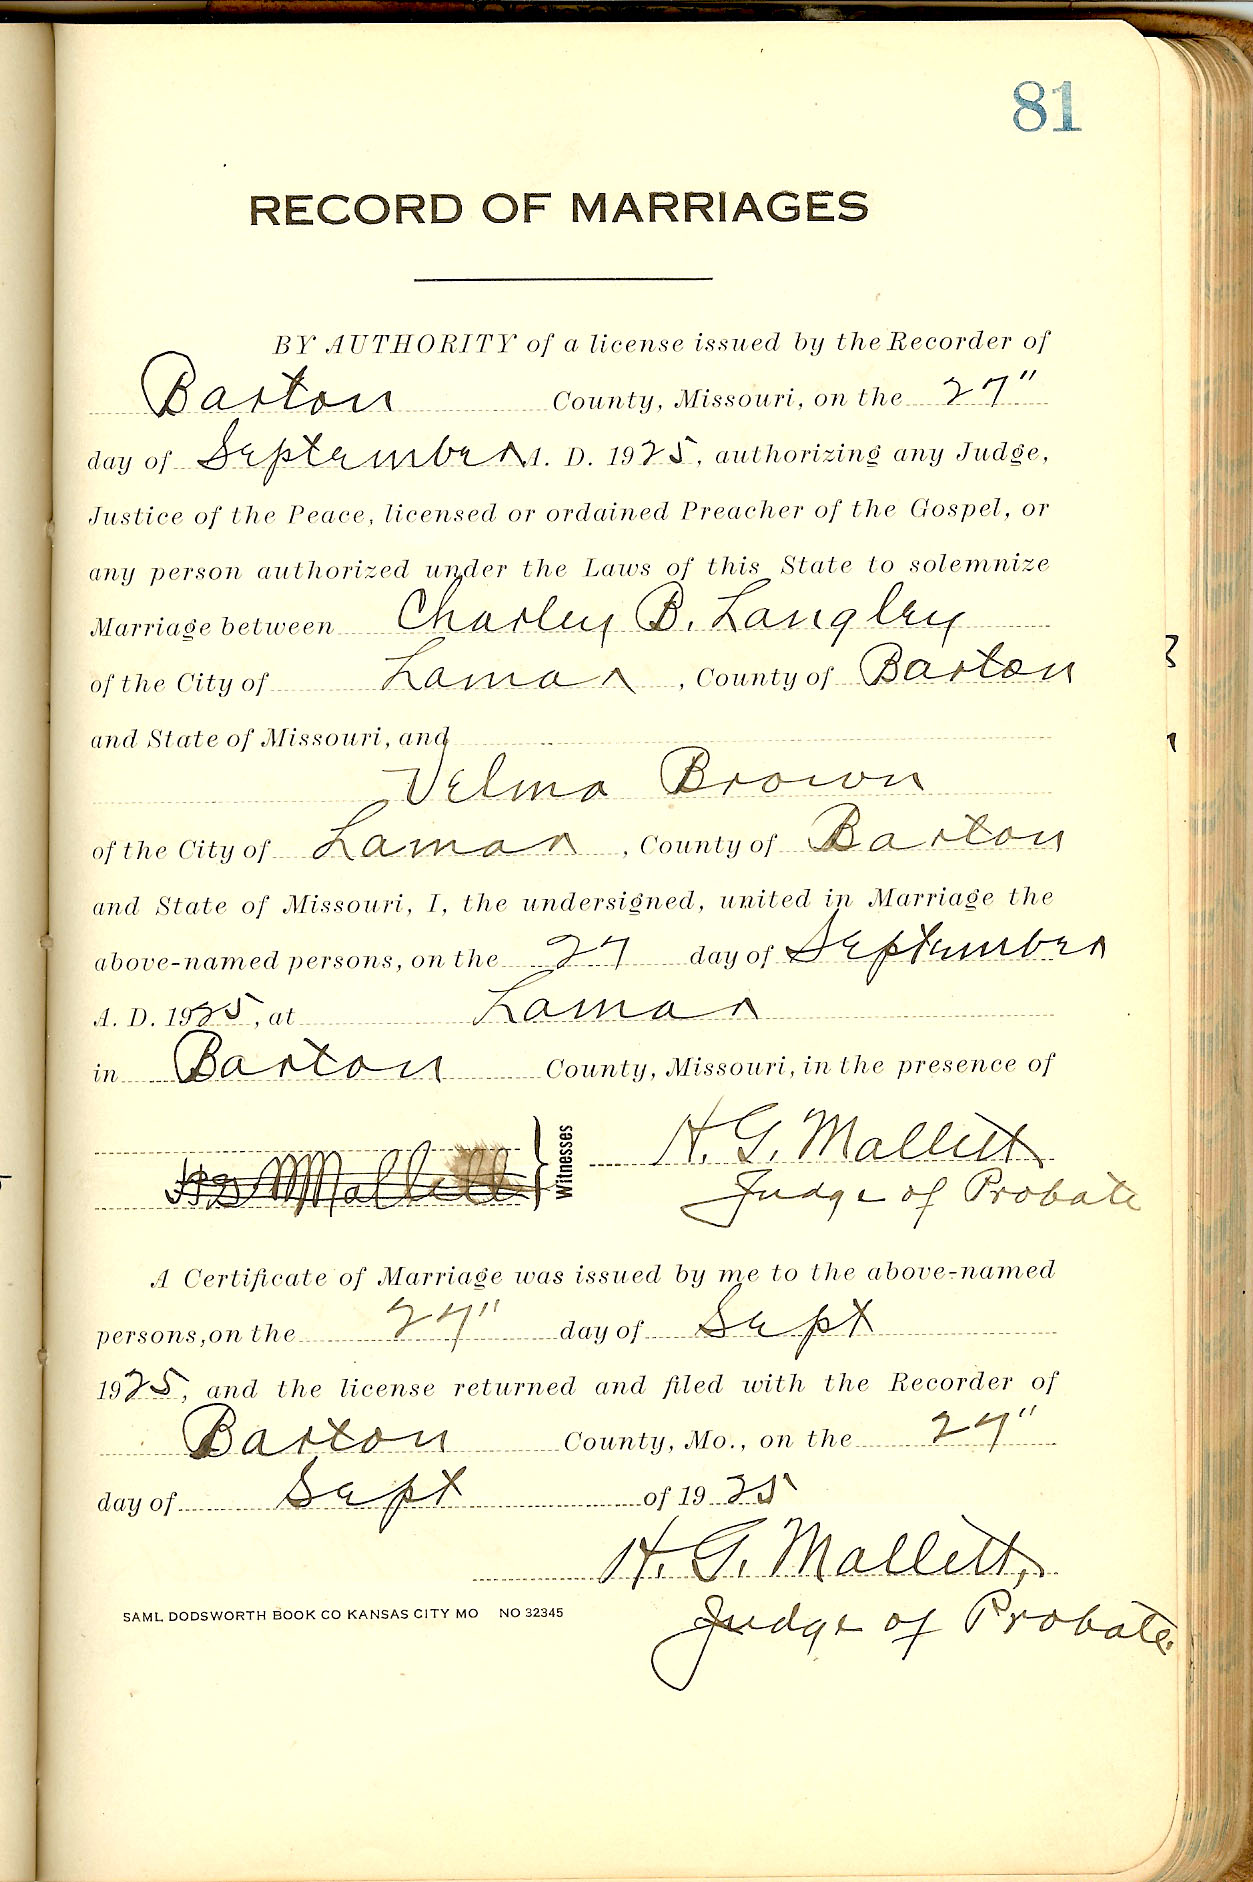 81
RECORD OF MARRIAGES
BY AUTHORITY of a license issued by the Recorder of
Barton County, Missouri, on the 27"
day of September A. D. 1925, authorizing any Judge,
Justice of the Peace, licensed or ordained Preacher of the Gospel, or
any person authorized under the Laws of this State to solemnize
Marriage between Charley B. Langley
of the City of Lamar, County of Barton
and State of Missouri, and
Velma Brown
of the City of Lamar, County of Barton
and State of Missouri, I, the undersigned, united in Marriage the
above-named persons, on the 27 day of September
A. D. 1925, at Lamar
in Barton County, Missouri, in the presence of
Witnesses H. G. Mallett
Judge of Probate
A Certificate of Marriage was issued by me to the above-named
persons, on the 27" day of Sept
1925, and the license returned and filed with the Recorder of
Barton County, Mo., on the 27"
day of Sept of 1925
H. G. Mallett,
SAML DODSWORTH BOOK CO KANSAS CITY MO NO 32345
Judge of Probate.